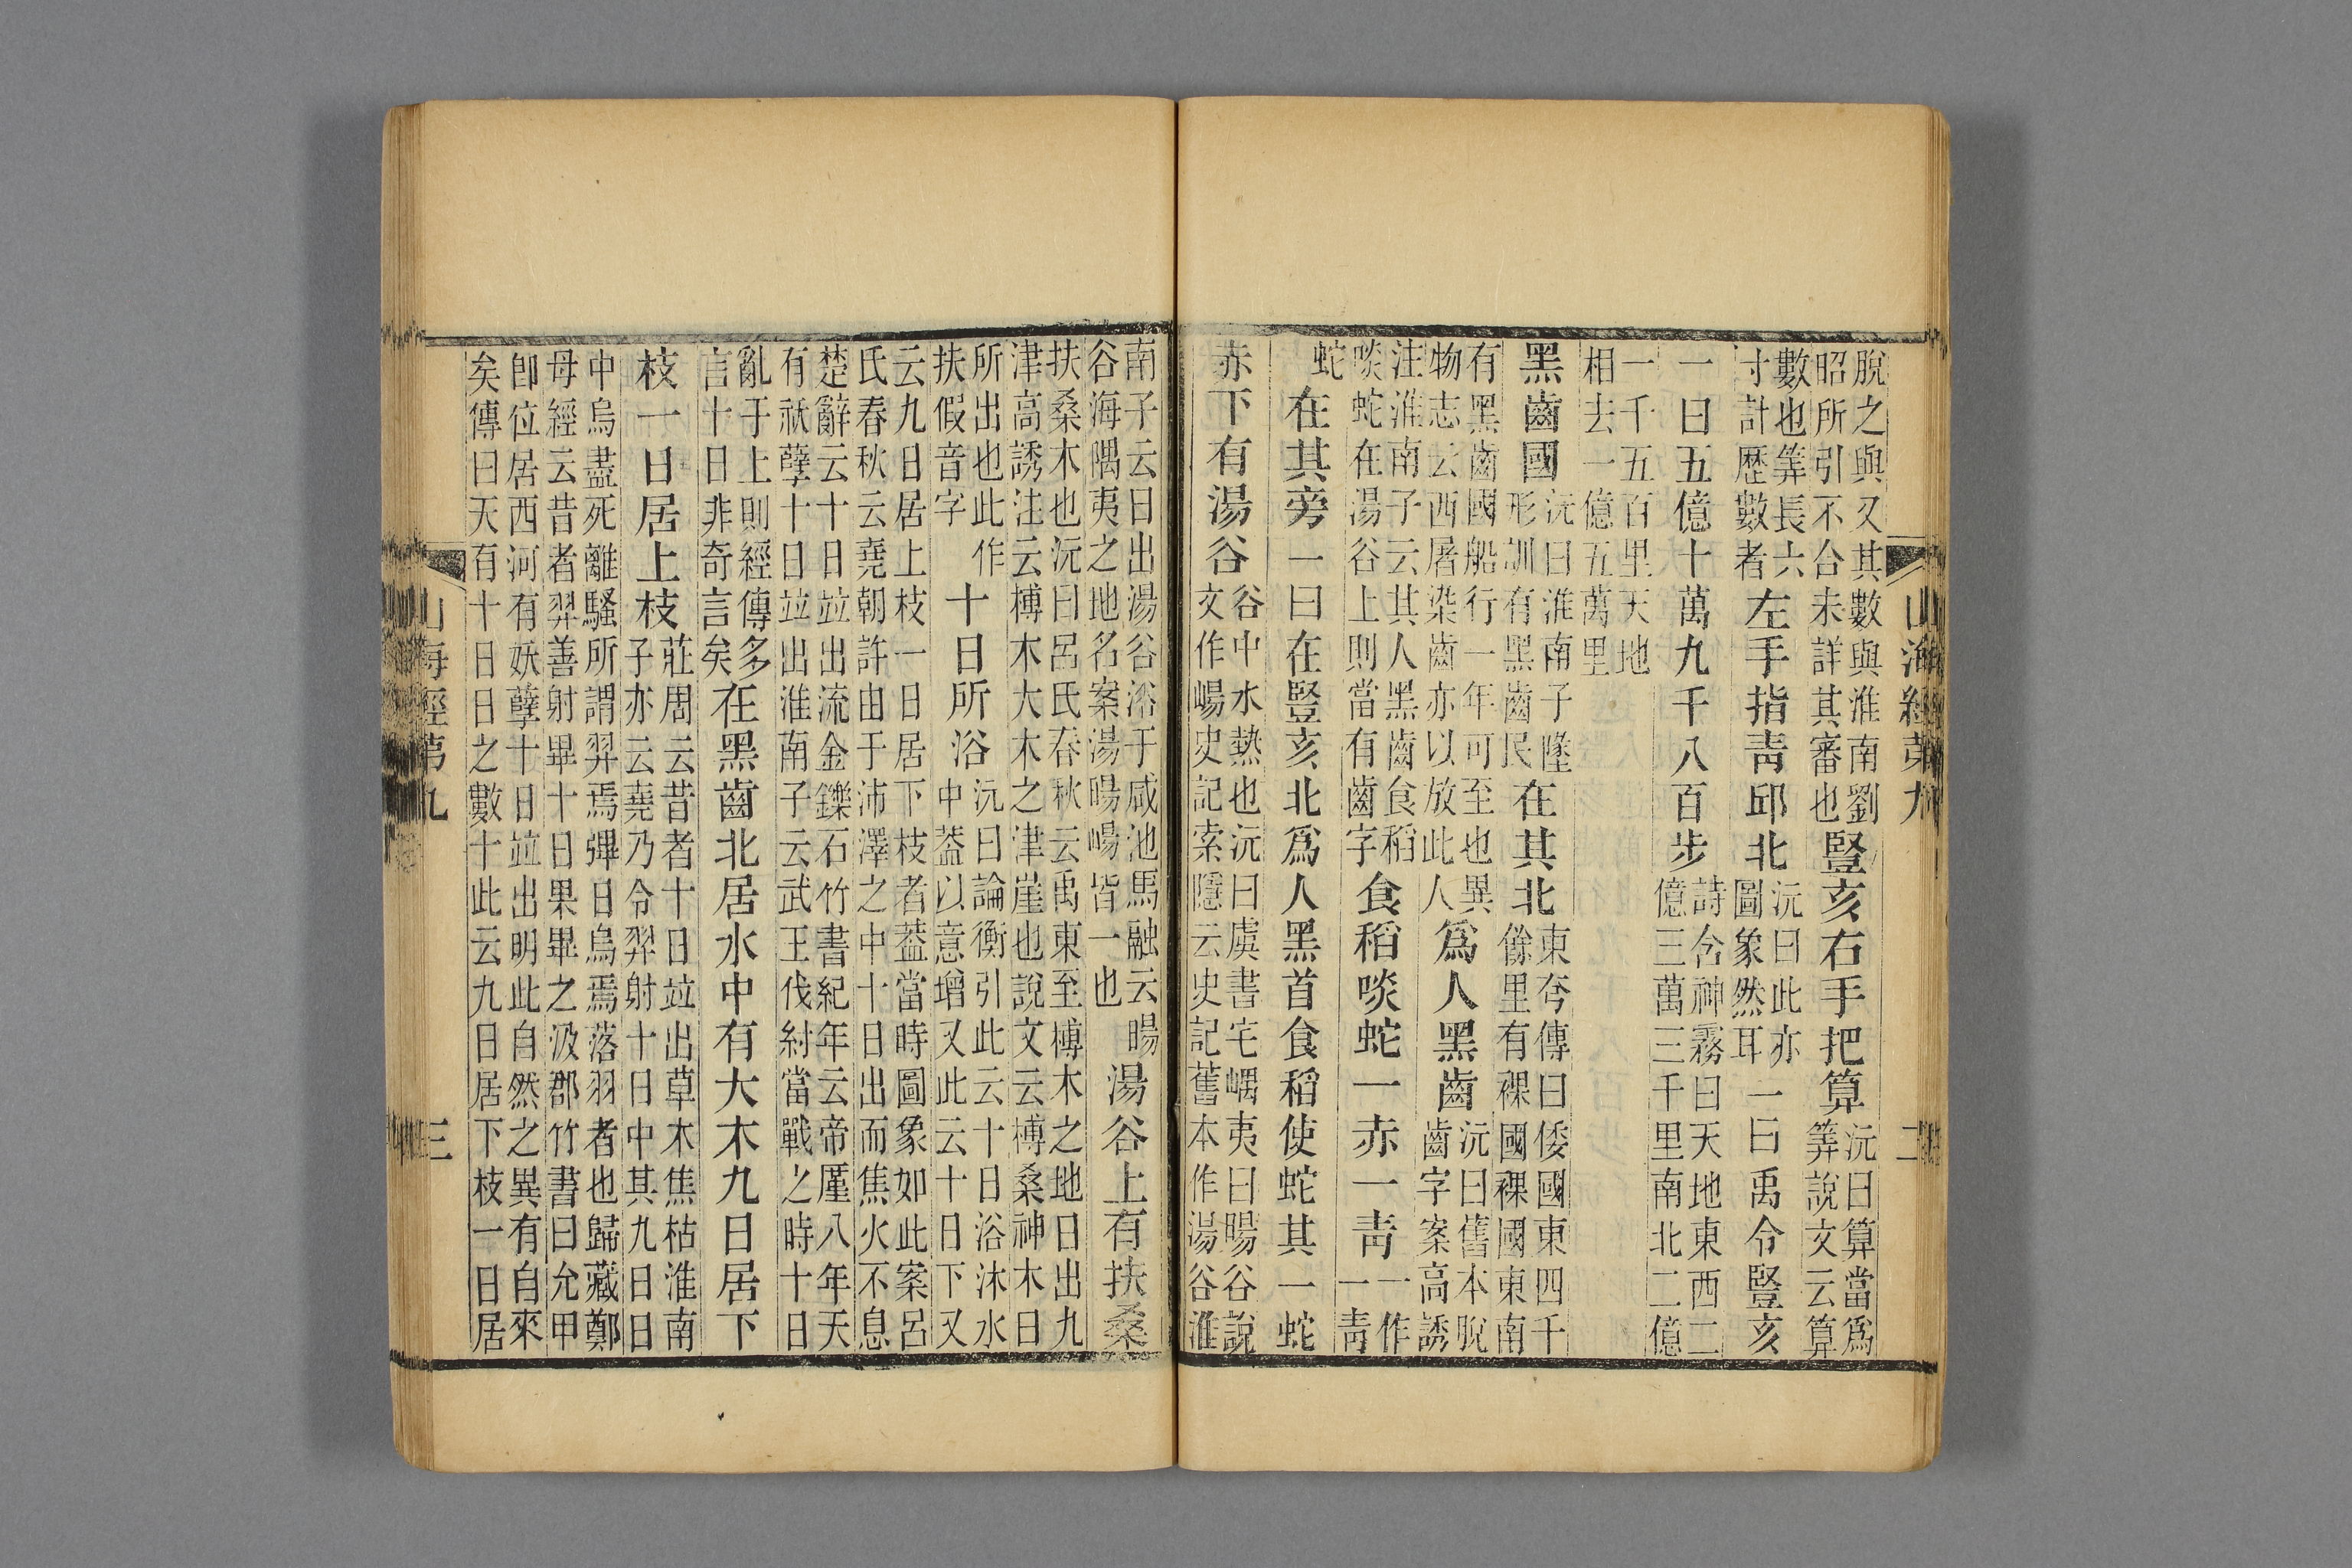 山海經弟九 二
脫之與又其數與淮南劉
昭所引不合未詳其審也
豎亥右手把算
沅曰算當爲
筭說文云算
數也筭長六
寸計歷數者
左手指靑邱北
沅曰此亦
圖象然耳
一曰禹令豎亥
一曰五億十萬九千八百步
詩含神霧曰天地東西二
億三萬三千里南北二億
一千五百里天地
相去一億五萬里
黑齒國
沅曰淮南子墬
形訓有黑齒民
在其北
東夸傳曰倭國東四千
餘里有裸國裸國東南
有黑齒國船行一年可至也異
物志云西屠染齒亦以放此人
爲人黑齒
沅曰舊本脫
齒字案高誘
注淮南子云其人黑齒食稻
啖蛇在湯谷上則當有齒字
食稻啖蛇一赤一靑
一作
一靑
蛇
在其旁一曰在豎亥北爲人黑首食稻使蛇其一蛇
赤下有湯谷
谷中水熱也沅曰虞書宅嵎夷曰暘谷說
文作崵史記索隱云史記舊本作湯谷淮
南子云日出湯谷浴于咸池馬融云暘
谷海隅夷之地名案湯暘崵皆一也
湯谷上有扶桑
扶桑木也沅曰呂氏春秋云禹東至榑木之地日出九
津高誘注云榑木大木之津崖也說文云榑桑神木日
所出也此作
扶假音字
十日所浴
沅曰論衡引此云十日浴沐水
中蓋以意增又此云十日下又
云九日居上枝一日居下枝者蓋當時圖象如此案呂
氏春秋云堯朝許由于沛澤之中十日出而焦火不息
楚辭云十日竝出流金鑠石竹書紀年云帝厪八年天
有祅孽十日竝出淮南子云武王伐紂當戰之時十日
亂于上則經傳多
言十日非奇言矣
在黑齒北居水中有大木九日居下
枝一日居上枝
莊周云昔者十日竝出草木焦枯淮南
子亦云堯乃令羿射十日中其九日日
中烏盡死離騷所謂羿焉彃日烏焉落羽者也歸藏鄭
母經云昔者羿善射畢十日果畢之汲郡竹書曰允甲
卽位居西河有妖孽十日竝出明此自然之異有自來
矣傳曰天有十日日之數十此云九日居下枝一日居
山海經第九 三